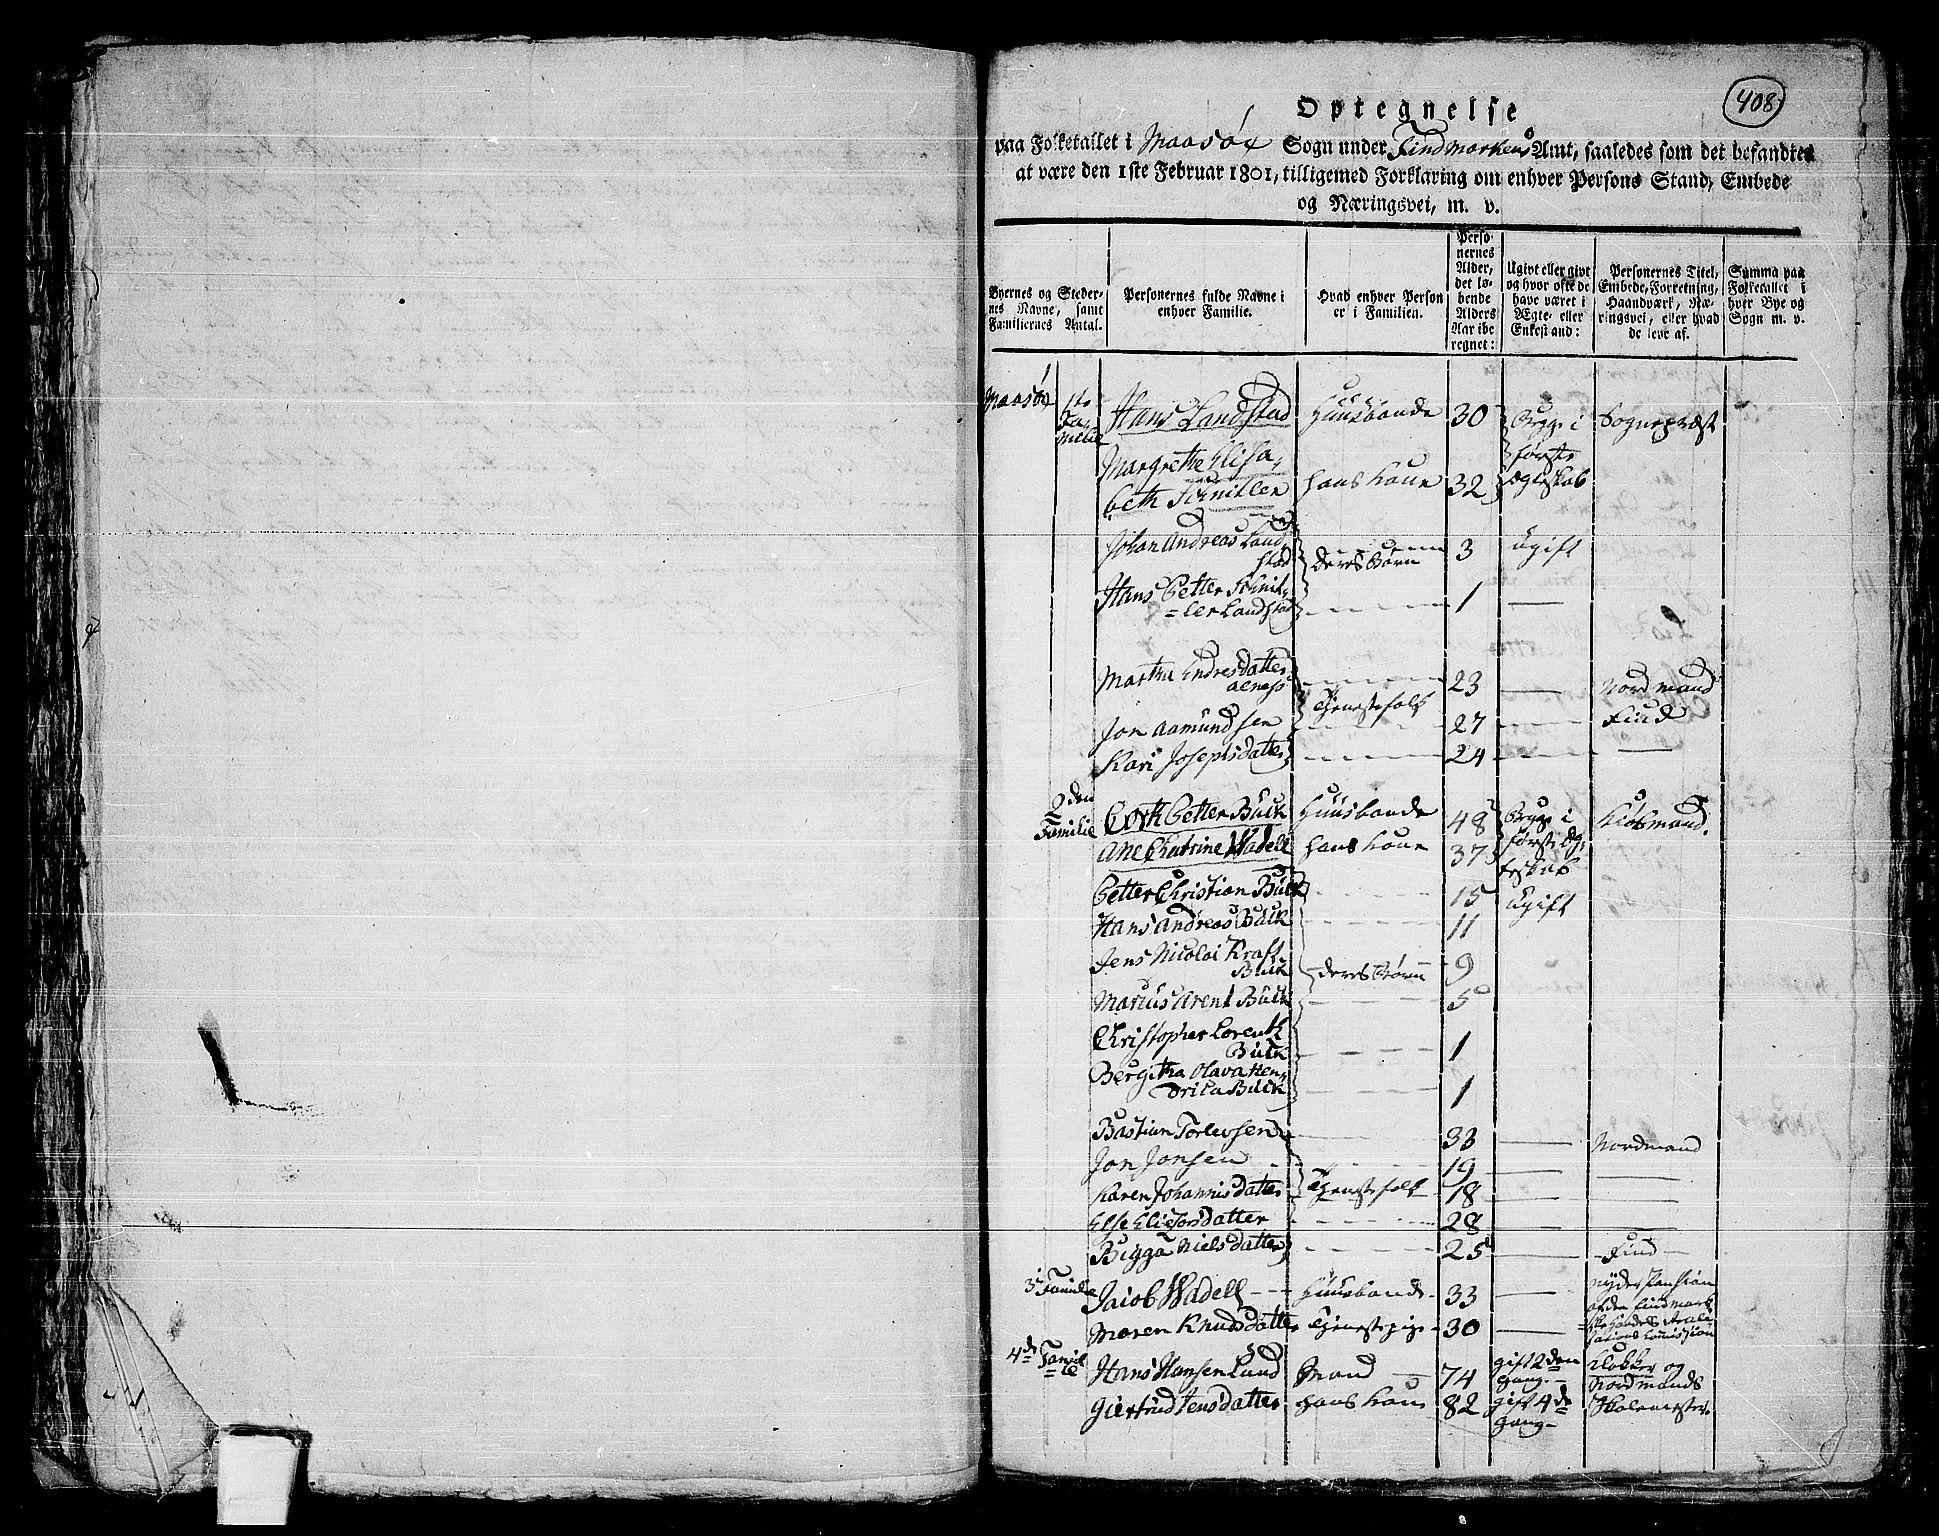 408
Optegnelse
paa Folketallet i Maasøe Sogn under Findmarkens Amt, saaledes som det befandtes
at være den 1ste Februar 1801, tilligemed Forklaring om enhver Persons Stand, Embede
og Næringsvei, m. v.
Byernes og Stedernes Navne, samt Familiernes Antal.
Personernes fulde Navne i enhver Familie.
Hvad enhver Person er i Familien.
Personernes Alder, det løbende Alders Aar iberegnet:
Ugivt eller givt og hvor ofte de have været i Ægte- eller Enkestand:
Personernes Titel, Embede, Forretning, Haandværk, Næringsvei, eller hvad de leve af.
Summa paa Folketallet i hver Bye og Sogn m. v.
Maasøe 1te Familie Hans Landstad Huusbonde 30 Begge i Sognepræst
Margrethe Elisa- første
beth Schnitler hans kone 32 Ægteskab
Johan Andreas Land 3 ugift
stad deres Børn
Hans Petter Schnit-
ler Landstad 1 —
Martha Endresdatter 23 — Nordmand
Tjenestefolk
Jon Aamundsen 27 — Find
Kari Josephsdatter 24 — —
2den Familie Cort Petter Buck Huusbonde 48 Begge i Kiøbmand.
Ane Chatrine Wadell hans kone 37 første Æg-
teskab
Petter Christian Buck 15 ugift
Hans Andreas Buck 11
Jens Nicolai Kraft
Buck deres Børn 9
Marcus Arent Buck 5
Christopher Lorentz
Buck 1
Bergitha Olava Hen-
drica Buck 1
Bastian Torlevsen 33 — Nordmand
Jon Jonsen 19 — —
Karen Johannisdatter Tjenestefolk 18 — —
Else Eliesersdatter 28 — —
Bigga Nielsdatter 25 — Find
3die Familie Jacob Wadell Huusbonde 33 — nyder Pension
af den Findmark
ske Handels Reali-
sations Comission
Maren Knudsdatter Tjenestepige 30 —
4de Familie Hans Hansen Lund Mand 74 gift 2den gang Klokker og
Nordmands
Giertrud Jensdatter hans kone 82 gift 4de gang Skolemester.